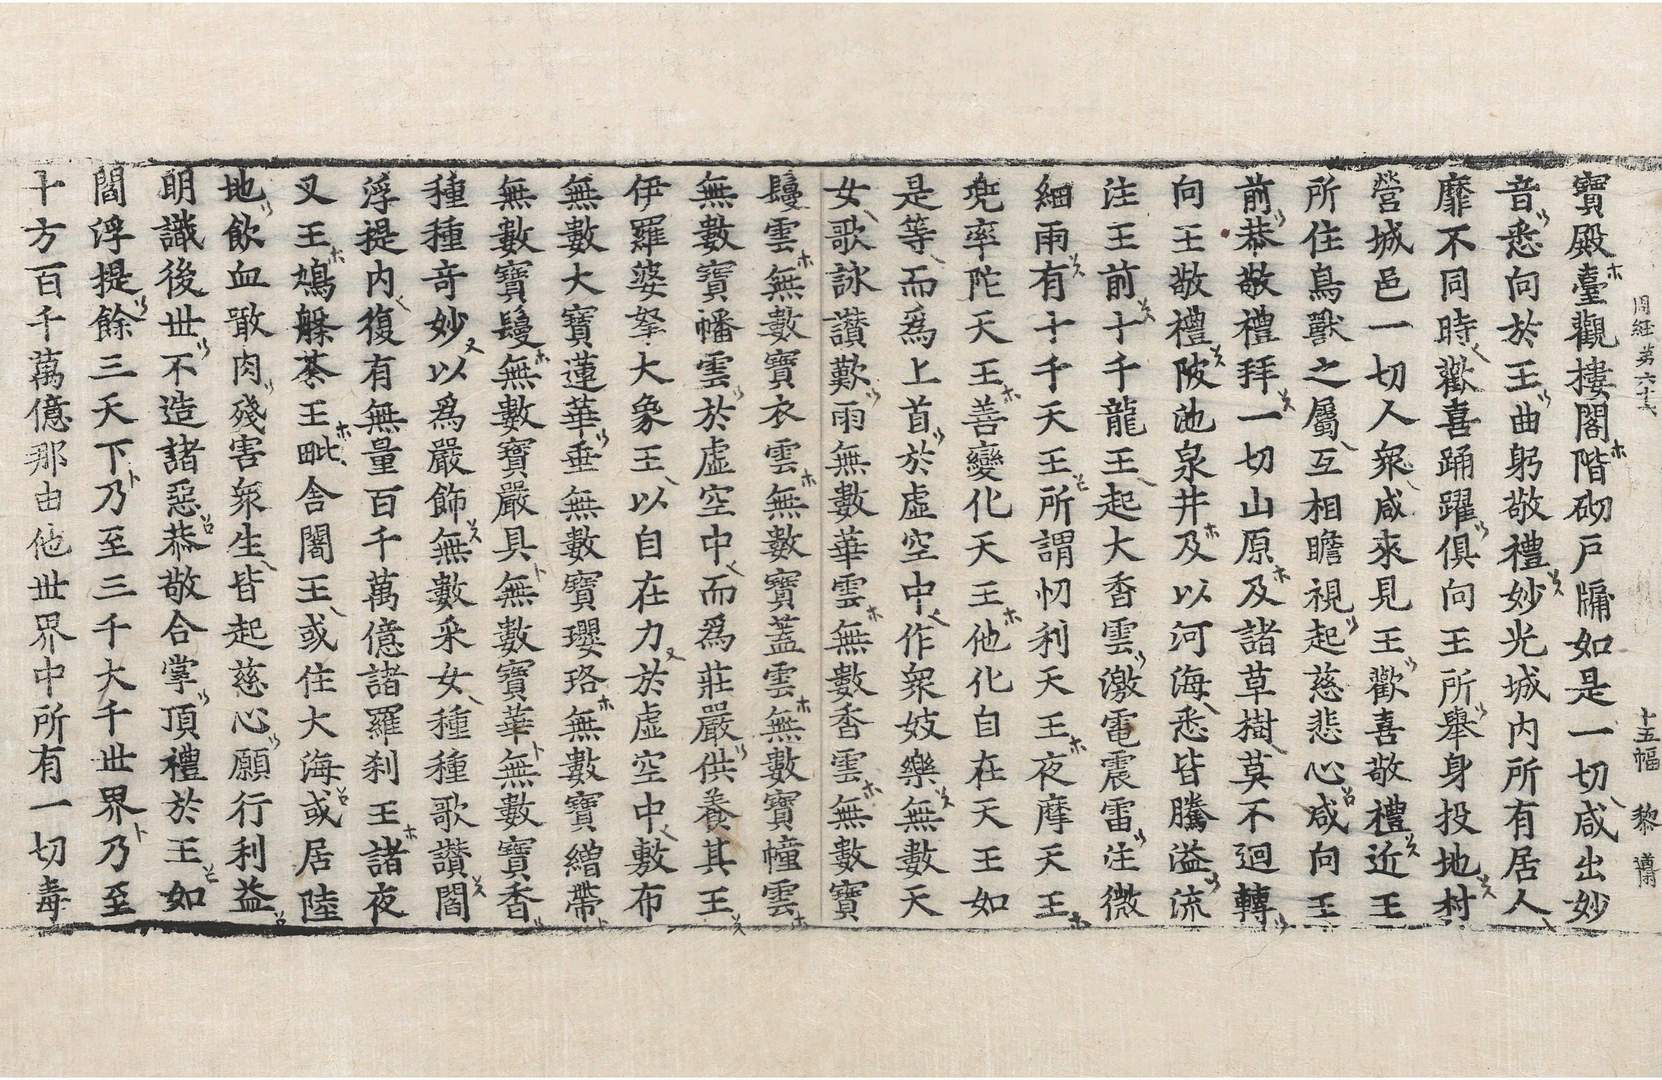 周經第六十六 十五幅 黎
寶殿臺觀樓閣階砌戶牖如是一切咸出妙
音悉向於王曲躬敬禮妙光城內所有居人
靡不同時歡喜踊躍俱向王所舉身投地村
營城邑一切人衆咸來見王歡喜敬禮近王
所住鳥獸之屬互相瞻視起慈悲心咸向王
前恭敬禮拜一切山原及諸草樹莫不迴轉
向王敬禮陂池泉井及以河海悉皆騰溢流
注王前十千龍王起大香雲激電震雷注微
細雨有十千天王所謂忉利天王夜摩天王
兜率陀天王善變化天王他化自在天王如
是等而爲上首於虛空中作衆妓樂無數天
女歌詠讚歎雨無數華雲無數香雲無數寶
鬘雲無數寶衣雲無數寶蓋雲無數寶幢雲
無數寶幡雲於虛空中而爲莊嚴供養其王
伊羅婆拏大象王以自在力於虛空中敷布
無數大寶蓮華垂無數寶瓔珞無數寶繒帶
無數寶鬘無數寶嚴具無數寶華無數寶香
種種奇妙以爲嚴飾無數采女種種歌讚閻
浮提內復有無量百千萬億諸羅刹王諸夜
叉王鳩槃茶王毗舍闍王或住大海或居陸
地飮血噉肉殘害衆生皆起慈心願行利益
明識後世不造諸惡恭敬合掌頂禮於王如
閻浮提餘三天下乃至三千大千世界乃至
十方百千萬億那由他世界中所有一切毒